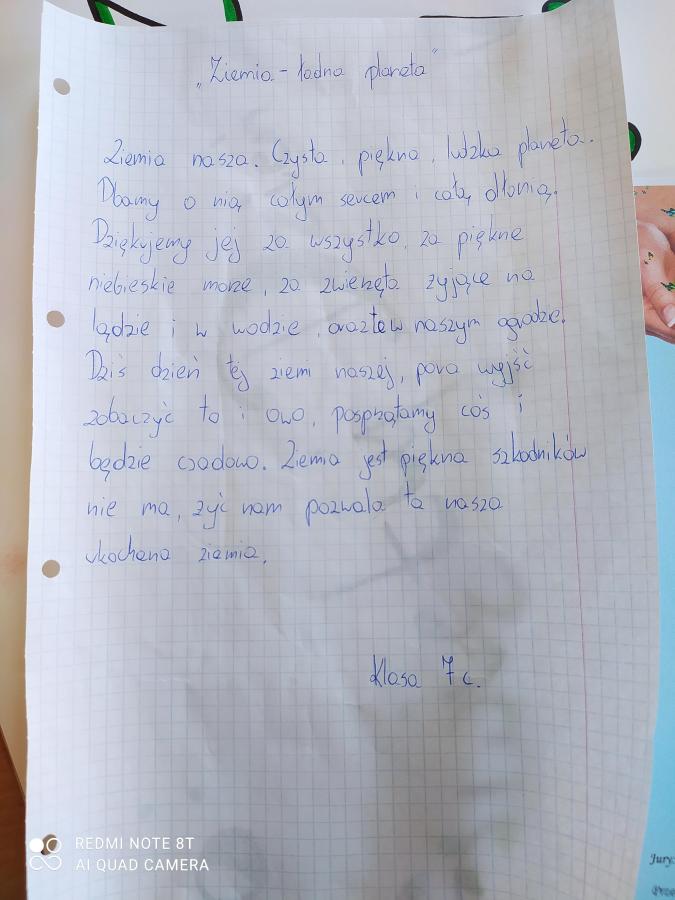 „Ziemia - ładna planeta"
Ziemia nasza. Czysta, piękna, ludzka planeta.
Dbamy o nią całym sercem i całą dłonią.
Dziękujemy jej za wszystko, za piękne
niebieskie morze, za zwierzęta żyjące na
lądzie i w wodzie, oraz te w naszym ogrodzie.
Dziś dzień tej ziemi naszej, pora wyjść
zobaczyć to i owo, posprzątamy coś i
będzie czadowo. Ziemia jest piękna szkodników
nie ma, żyć nam pozwala ta nasza
ukochana ziemia.
Klasa 7c.
REDMI NOTE 8T
AI QUAD CAMERA
Jury: